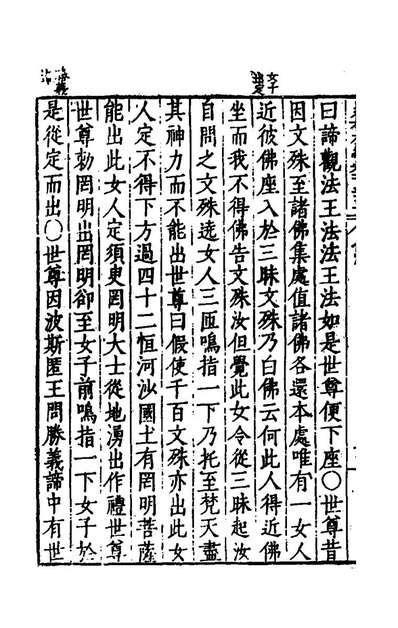 曰諦觀法王法法王法如是世尊便下座〇世尊昔
因文殊至諸佛集處值諸佛各還本處唯有一女人
近彼佛座入於三昧文殊乃白佛云何此人得近佛
坐而我不得佛告文殊汝但覺此女令從三昧起汝
自問之文殊遶女人三匝鳴指一下乃托至梵天盡
其神力而不能出世尊曰假使千百文殊亦出此女
人定不得下方過四十二恒河沙國土有罔明菩薩
能出此女人定須臾罔明大士從地湧出作禮世尊
世尊勑罔明出罔明卻至女子前鳴指一下女子於
是從定而出〇世尊因波斯匿王問勝義諦中有世